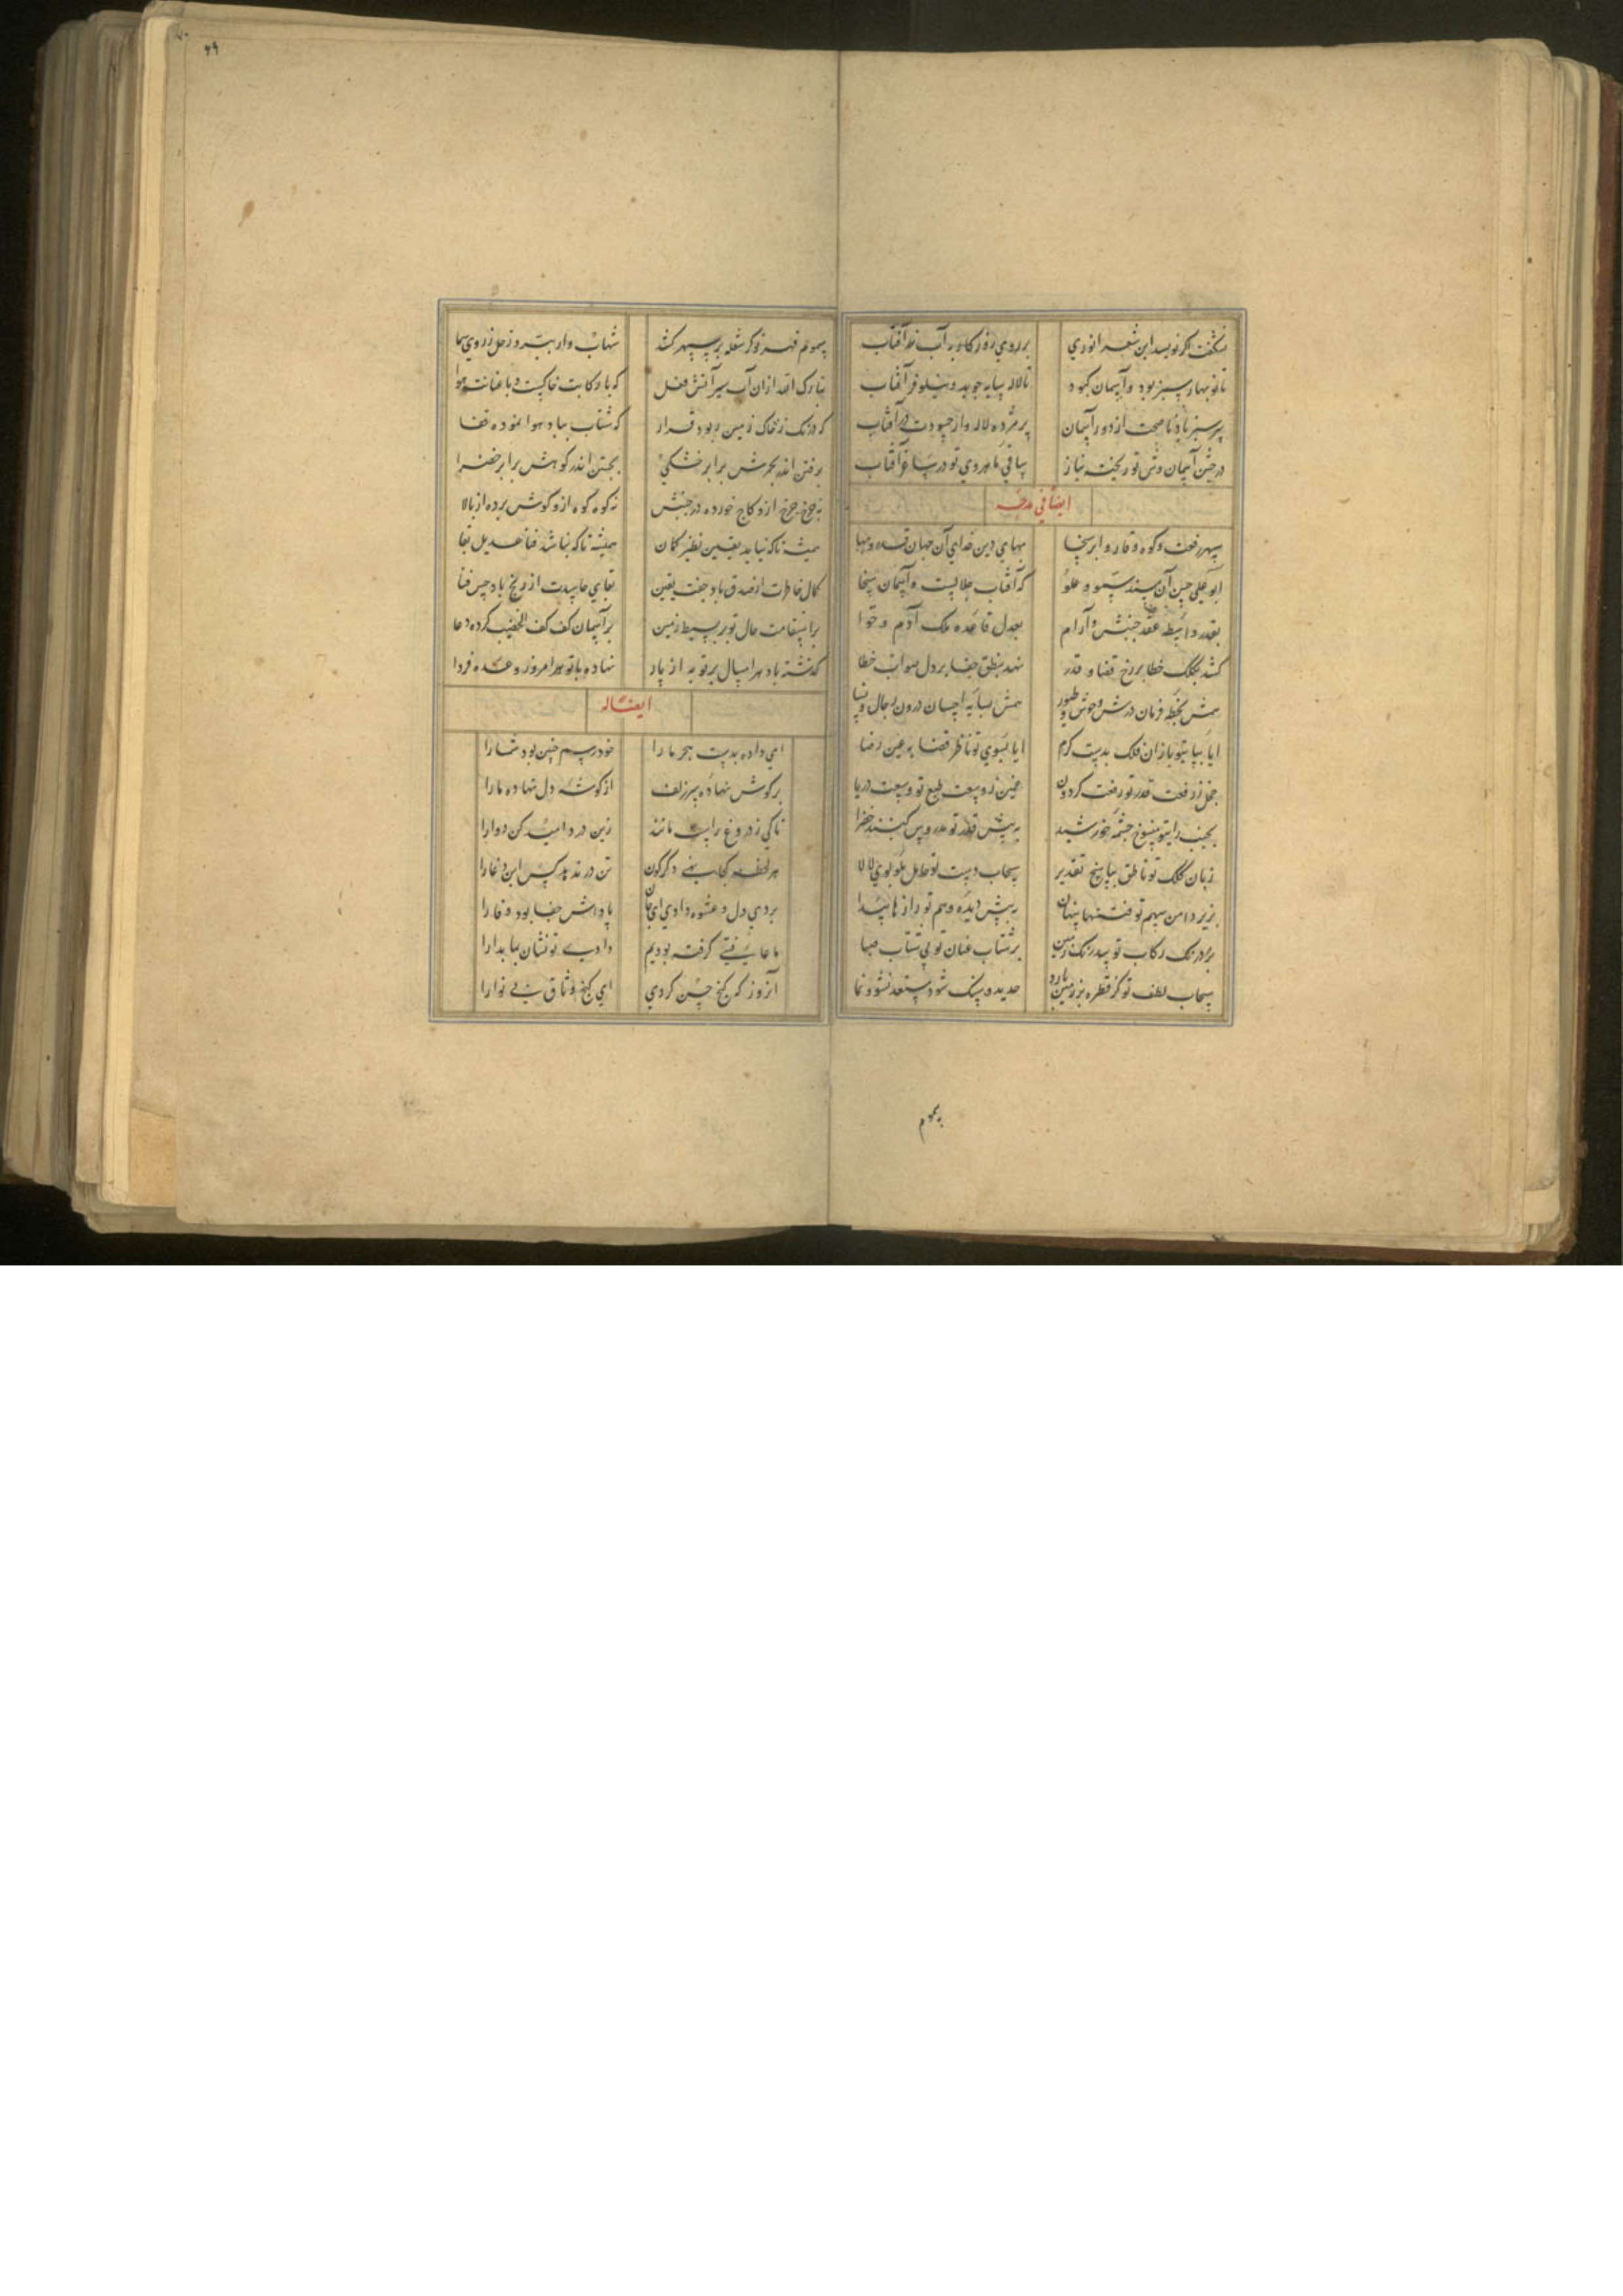 ۴۹
نشگفت اگر نویسد این شعر انوری
بر روی روزگار به آب زر آفتاب
تا نوبهار سبز بود و آسمان کبود
تا لاله سایه جوید و نیلوفر آفتاب
سرسبز باد ناصحت از دور آسمان
پژمرده لاله وار حسودت در آفتاب
در جشن آسمان وش تو ریخته بناز
ساقی ماهروی تو در ساغر آفتاب
ایضا فی مدحه
سپهر رفعت و کوه وقار و ابر سخا
بهای دین خدای آن جهان قدر و بها
ابو علی حسن آن مسند سمو و علو
که آفتاب جلالست و آسمان سخا
بقدر واسطه عقد جنبش و آرام
بعدل قاعده ملک آدم و حوا
کشد بکلک خطا بر رخ قضا و قدر
نهد بنطق جفا بر دل صواب خطا
همش بخطه فرمان درش وحوش و طیور
همش بسایه احسان درون رجال و نسا
ایا بپای تو یازان فلک بدست کرم
ایا بسوی تو ناظر قضا به عین رضا
خجل ز رفعت قدر تو رفعت گردون
غمین ز وسعت طبع تو وسعت دریا
بجنب رای تو منسوخ چشمه خورشید
به پیش قدر تو مدروس گنبد خضرا
زبان کلک تو ناطق بپاسخ تقدیر
سحاب دست تو حامل بلولوی لالا
بزیر دامن سهم تو فتنها پنهان
به پیش دیده وهم تو رازها پیدا
بر درنک رکاب تو بیدرنک زمین
بر شتاب عنان تو بی شتاب صبا
سحاب لطف تو گر قطره بر زمین بارد
حدید و سنک شود مستعد نشو و نما
سموم
سموم قهر تو گر شعله بر سپهر کشد
شهاب وار بیفتد زحل ز روی سما
تبارک الله ازان آب سیر آتش فعل
که با رکابت خاکست و با عنانت هوا
که درنک ز خاک زمین ربوده قرار
که شتاب بباد هوا نموده قفا
برفتن اندر بحرش برابر خشکی
بجستن اندر کوهش برابر صحرا
نه چرخ چرخ ازو کاج خورده در جنبش
نه کوه کوه ازو گوش برده از بالا
همیشه تا که نیاید یقین نظیر گمان
همیشه تا که نباشد فنا عدیل بقا
کمال خاطرت از صدق باد جفت یقین
بقای حاسدت از رنج باد جنس فنا
بر استقامت حال تو بر بسیط زمین
بر آسمان کف کف الخضیب کرده دعا
گذشته باد هر امسال بر تو به از پار
نهاده با تو هر امروز وعده فردا
ایضا له
ای داده بدست هجر ما را
خود رسم چنین بود شما را
بر گوش نهاده سر زلف
از گوشه دل نهاده ما را
تا کی ز دروغ راست مانند
زین درد امید کن دوا را
هر لحظه کجا نهی دگرگون
تن در ندهد کس این دغا را
بردی دل و عشوه دادی ای جان
پاداش جفا بود وفا را
ما عافیتی گرفته بودیم
دادی تو نشان بما بلا را
آنروز که گنج حسن کردی
این کنج وثاق بی نوا را